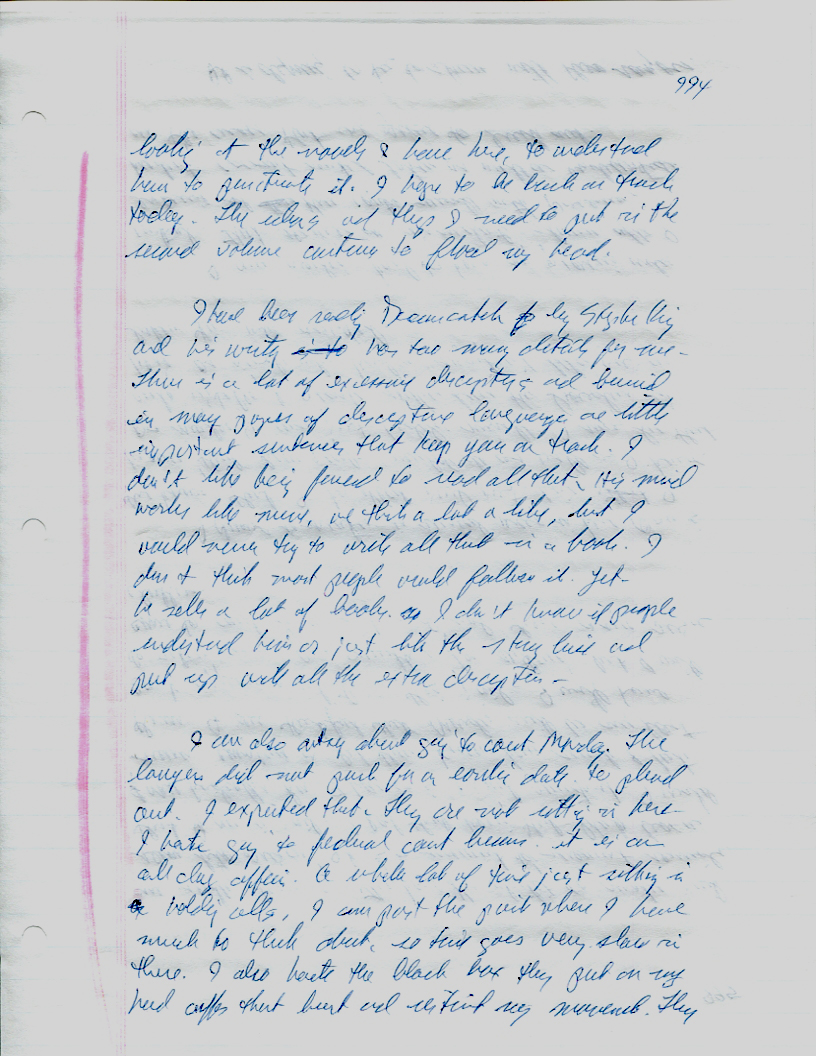 994
looking at the novels I have here, to understand
how to punctuate it. I hope to be back on track
today. The ideas and things I need to put in the
second volume continue to flood my head.
I have been reading Dreamcatcher by Stephen King
and his writing is to has too many details for me.
There is a lot of excessive description and buried
in many pages of descriptive language are little
important sentences that keep you on track. I
don't like being forced to read all that. His mind
works like mine, we think a lot a like, but I
would never try to write all that in a book. I
don't think most people would follow it. Yet
he sells a lot of books. I don't know if people
understand him or just like the story line and
put up with all the extra description -
I am also antsy about going to court Monday. The
lawyers did not push for an earlier date to plead
out. I expected that. They are not sitting in here.
I hate going to federal court because it is an
all day affair. A whole lot of time just sitting in
holding cells, I am past the point where I have
much to think about, so time goes very slow in
there. I also hate the black box they put on my
hand cuffs that hurt and restrict my movement. They